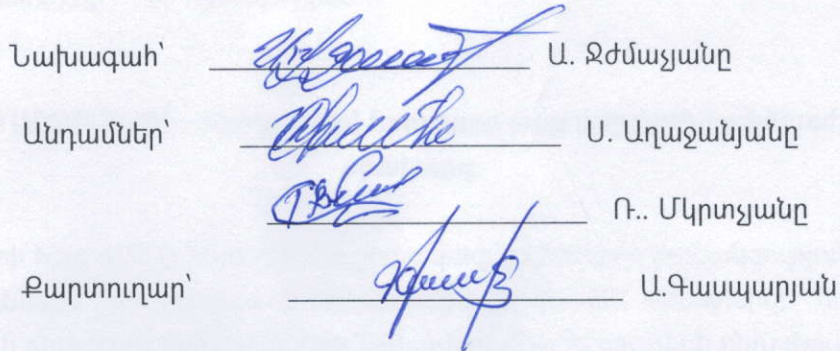 Նախագահ՝ Ա. Ջժմաչյանը
Անդամներ՝ Ս. Աղաջանյանը
Ռ.. Մկրտչյանը
Քարտուղար՝ Ա.Գասպարյան